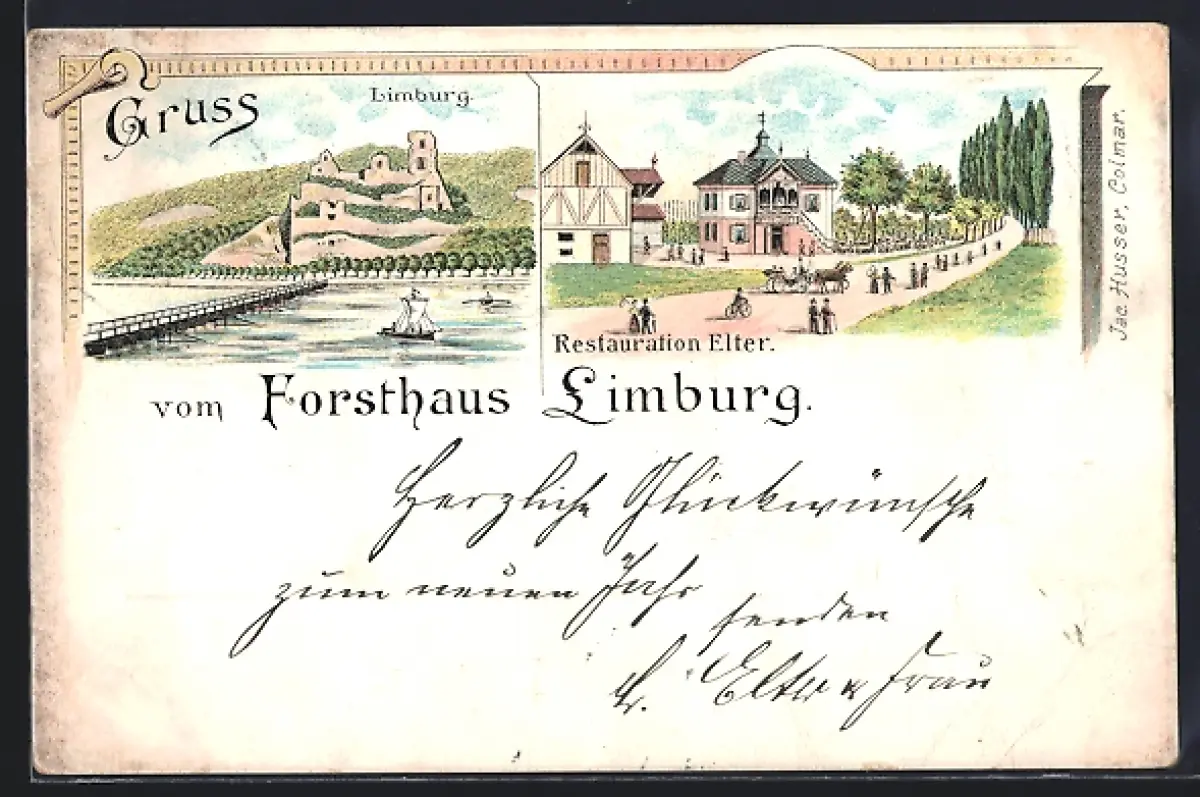 Gruss
Limburg.
Restauration Elter.
vom Forsthaus Limburg.
Jac. Husser, Colmar.
Herzliche Glückwünsche
zum neuen Jahr
senden
Elter u Frau